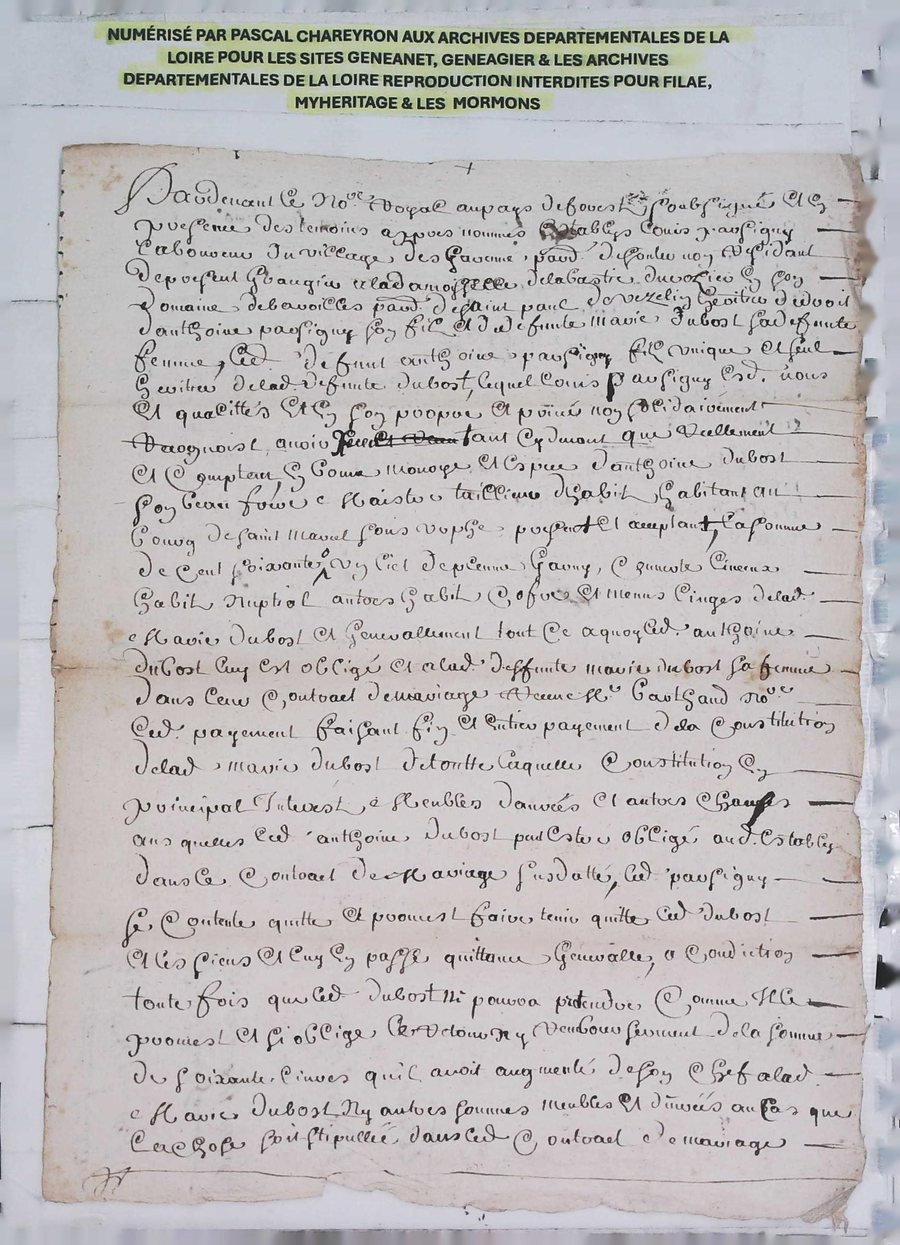 NUMÉRISÉ PAR PASCAL CHAREYRON AUX ARCHIVES DEPARTEMENTALES DE LA
LOIRE POUR LES SITES GENEANET, GENEAGIER & LES ARCHIVES
DEPARTEMENTALES DE LA LOIRE REPRODUCTION INTERDITES POUR FILAE,
MYHERITAGE & LES MORMONS
Pardevant le Nore Royal au pays de forest soubsigné et en
presence des temoins apres nommés establys Louis parsigny
laboureur du village des parr. de non residant
de present grangier a la damoyzelle de labastie en son
domaine de bavoilles parr. de saint paul de vezelin heritier de droit
d'anthoine parsigny son fil et de defunte marie Dubost sa defunte
femme, led. defunt anthoine parsigny fil unique et seul
heritier de lad. defunte dubost, lequel Louis parsigny esd. noms
et qualittés et en son propre et privé non solidairement
anoir tant cydevant que reellement
et comptent en bonne monoye et espece d'anthoine dubost
son beau frere Maistre tailleur d'habit habitant au
bourg de saint Marcel sous present et acceptant, la somme
de cent soixante
habit nuptiol autres habit Cofre et menus linges de lad.
Marie dubost et Generallement tout ce aquoy led. anthoine
dubost luy est obligé et a lad. deffunte marie dubost sa femme
dans leur Contract de mariage Me Barthand Nore
led. payement faisant fin et entier payement de la Constitution
de lad. marie dubost de toutte laquelle Constitution en
principal Interest Meubles danrées et autres Choses
aus queles led. anthoine dubost put estre obligé aud. estably
dans le Contract de Mariage susdatté, led. parsigny
se Contente quitte et promest faire tenir quitte led. dubost
et les siens et luy en passe quittance Generalle, a Condiction
toute fois que led. dubost ni poura pretendre Comme Il le
promest et si oblige le retour ny remboursement de la somme
de soixante livres qu'il avoit augmenté de son Chef a lad.
Marie dubost Ny autres sommes meubles et danrées au Cas que
la chose soit stipullée dans led. Contract de mariage